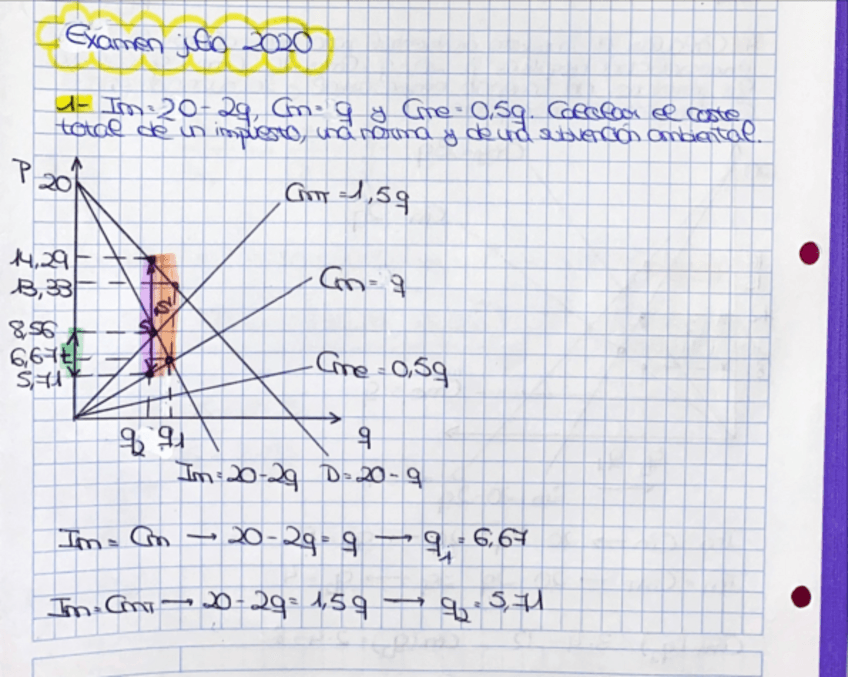 Examen julio 2020
1- Im = 20 - 2q, Cm = q y Cme = 0,5q. Calcular el coste
total de un impuesto, una norma y de una subvención ambiental.
P
20
CmT = 1,5q
14,29
13,33
Cm = q
S'
S
8,56
6,67
t
5,71
Cme = 0,5q
q2 q1
q
Im = 20 - 2q D = 20 - q
Im = Cm → 20 - 2q = q → q1 = 6,67
Im = CmT → 20 - 2q = 1,5q → q2 = 5,71